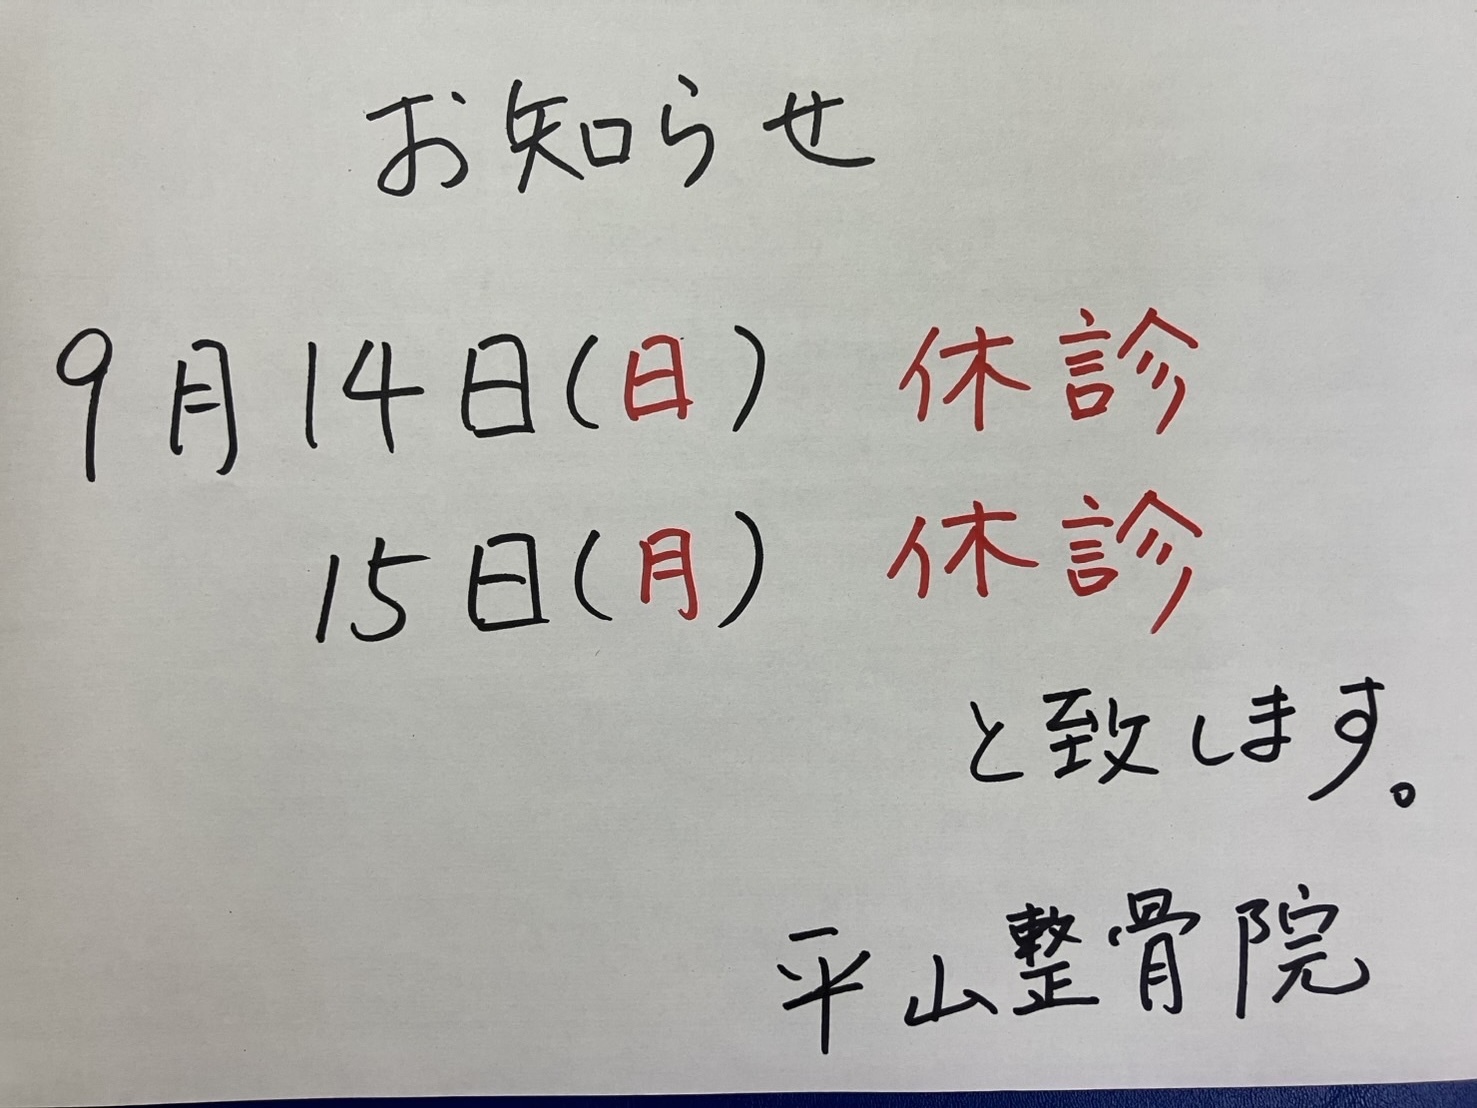 お知らせ
9月14日(日) 休診
15日(月) 休診
と致します。
平山整骨院